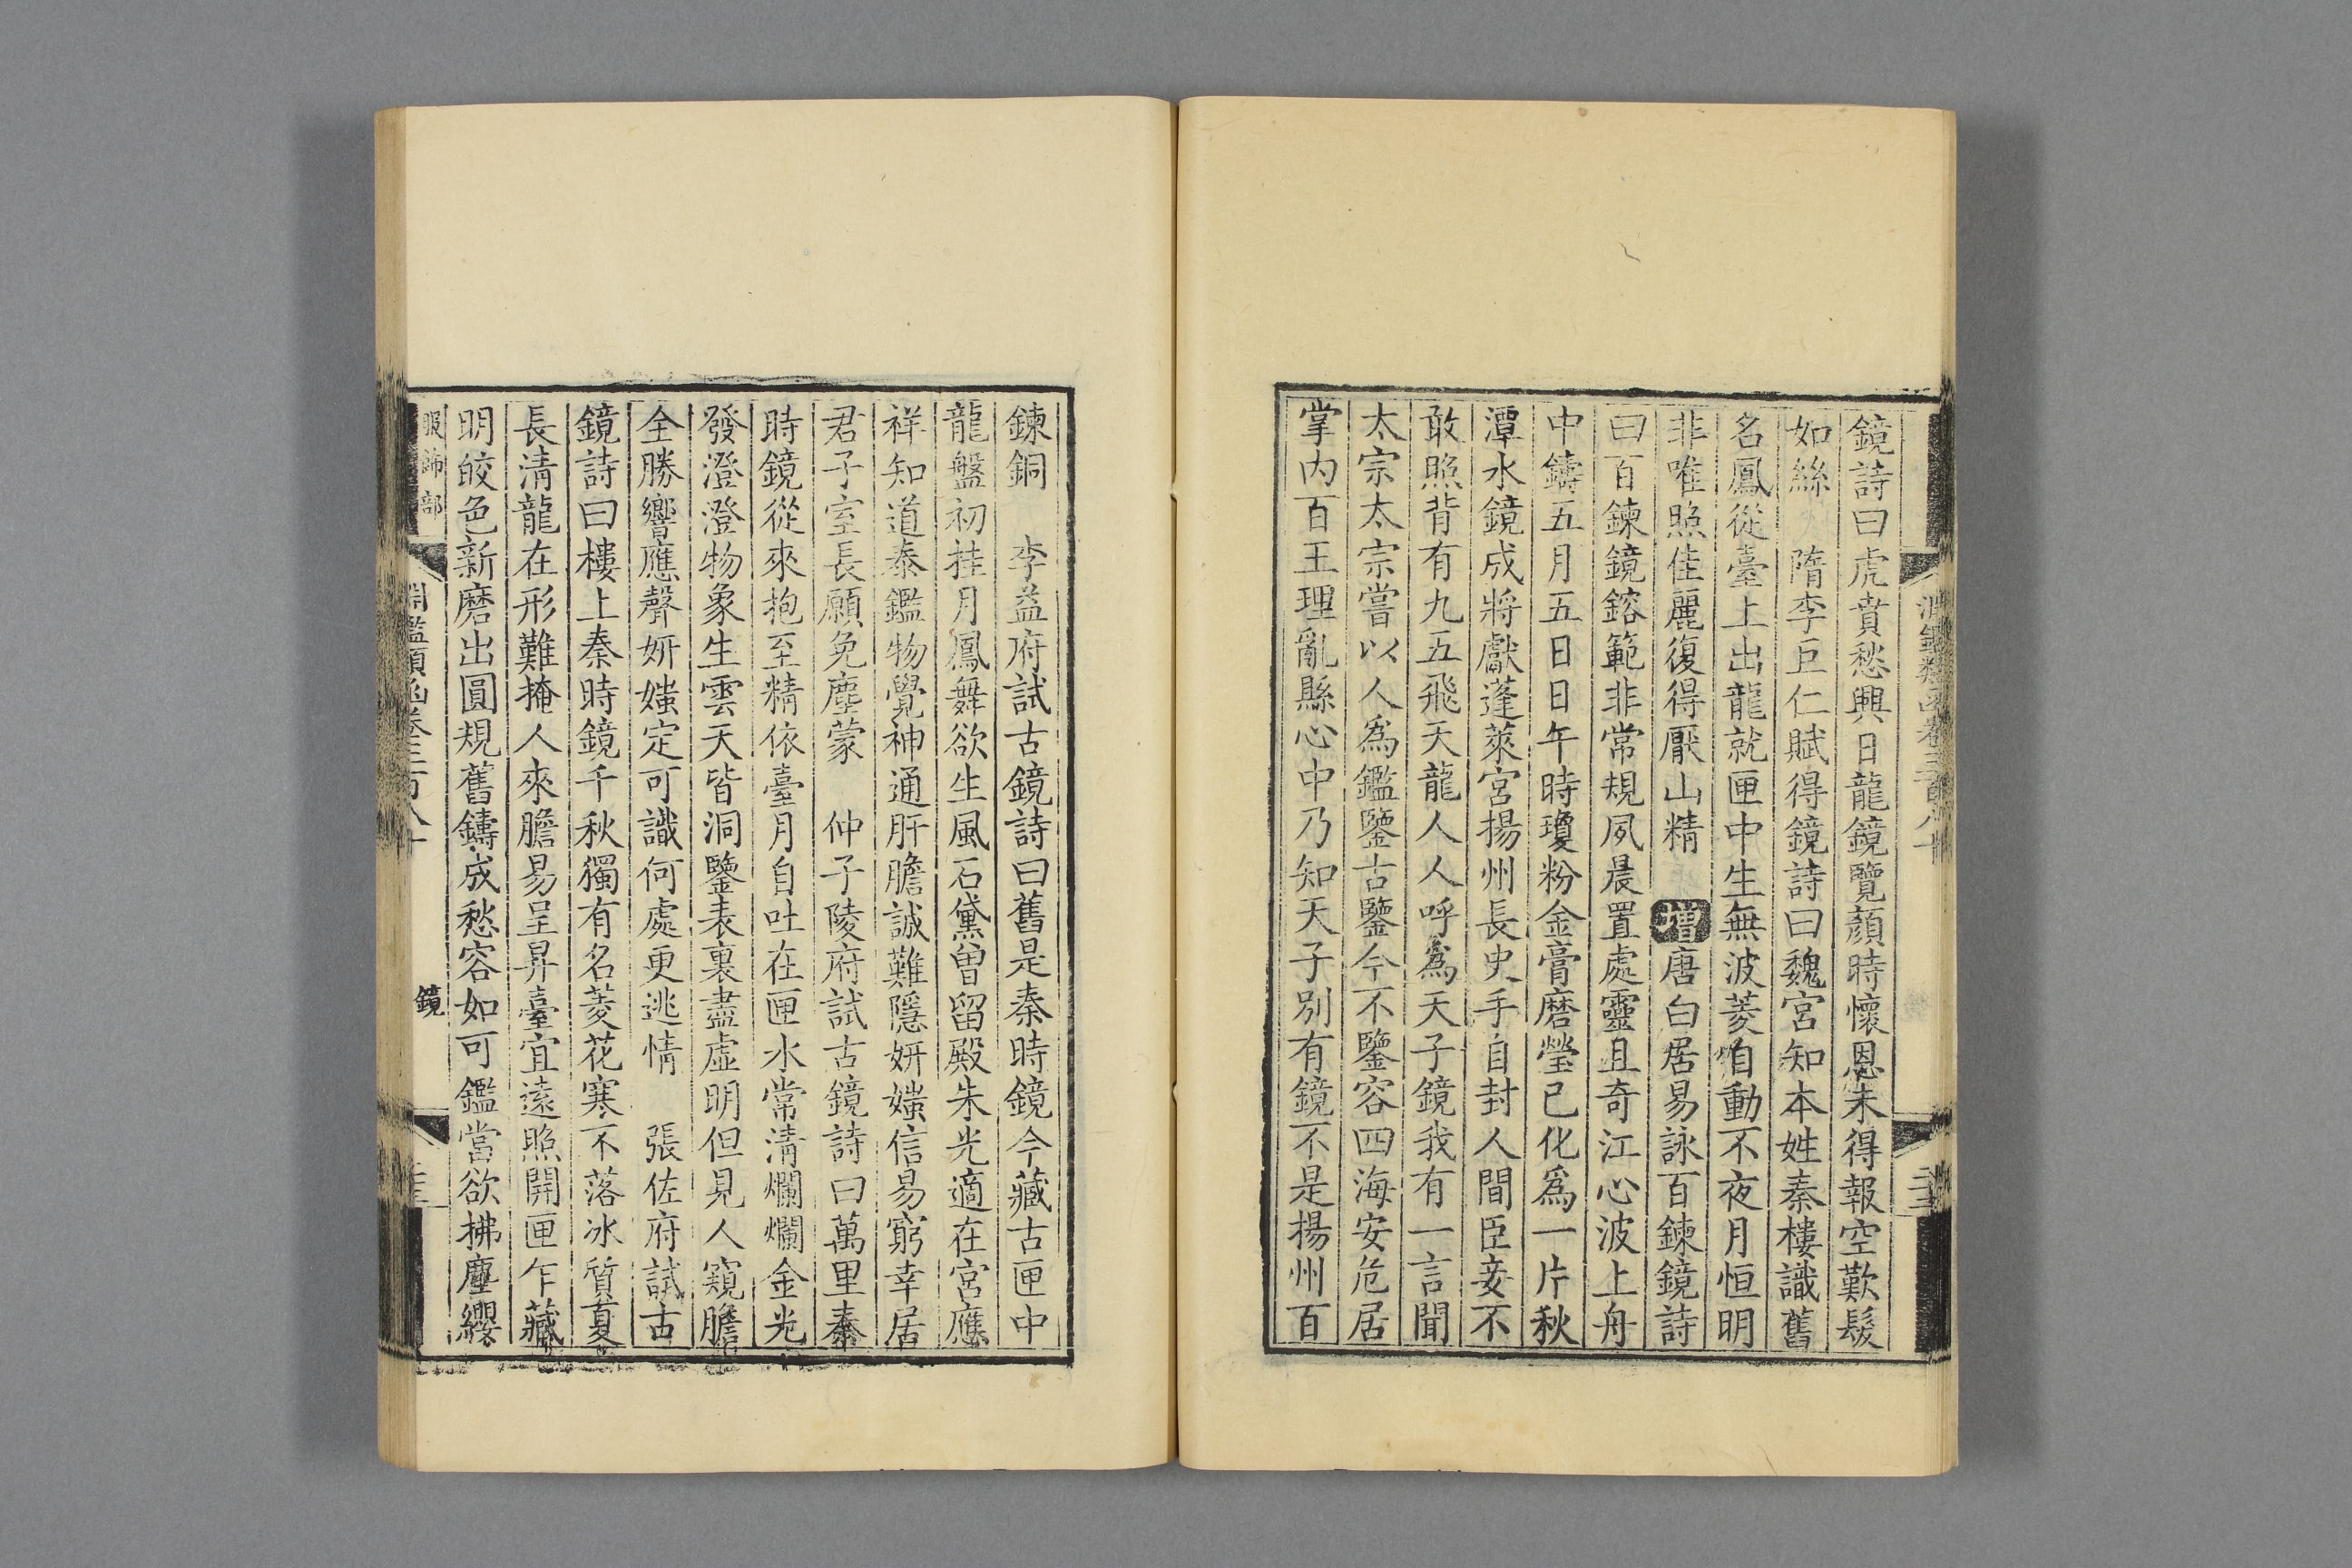 鏡詩曰虎賁愁興日龍鏡覽顏時懷恩未得報空歎髮
如絲　隋李巨仁賦得鏡詩曰魏宮知本姓秦樓識舊
名鳳從臺上出龍就匣中生無波菱自動不夜月恒明
非唯照佳麗復得厭山精　增唐白居易詠百鍊鏡詩
曰百鍊鏡鎔範非常規夙晨置處靈且奇江心波上舟
中鑄五月五日日午時瓊粉金膏磨瑩已化爲一片秋
潭水鏡成將獻蓬萊宮揚州長史手自封人間臣妾不
敢照背有九五飛天龍人人呼爲天子鏡我有一言聞
太宗太宗嘗以人爲鑑鑒古鑒今不鑒容四海安危居
掌內百王理亂縣心中乃知天子別有鏡不是揚州百
鍊銅　李益府試古鏡詩曰舊是秦時鏡今藏古匣中
龍盤初挂月鳳舞欲生風石黛曾留殿朱光適在宮應
祥知道泰鑑物覺神通肝膽誠難隱妍媸信易窮幸居
君子室長願免塵蒙　仲子陵府試古鏡詩曰萬里秦
時鏡從來抱至精依臺月自吐在匣水常清爛爛金光
發澄澄物象生雲天皆洞鑒表裏盡虛明但見人窺膽
全勝響應聲妍媸定可識何處更逃情　張佐府試古
鏡詩曰樓上秦時鏡千秋獨有名菱花寒不落冰質夏
長清龍在形難掩人來膽易呈昇臺宜遠照開匣乍藏
明皎色新磨出圓規舊鑄成愁容如可鑑當欲拂塵纓
服飾部　淵鑑類函卷三百八十　鏡